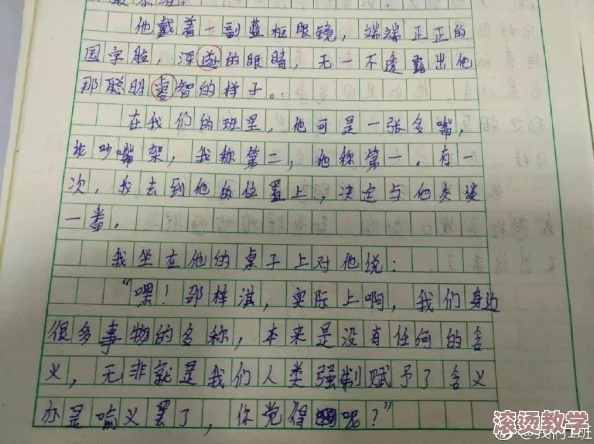 他戴着一副蓝框眼镜，端端正正的
国字脸，深邃的眼睛，无一不透露出他
那聪明睿智的样子。
在我们的班里，他可是一张名嘴，
论吵嘴架，我称第二，他称第一。有一
次，我去到他的位置上，决定与他交谈
一番。
我坐在他的桌子上对他说：
“嘿！邵梓淇，实际上啊，我们身边
很多事物的名称，本来是没有任何的含
义，无非就是我们人类强制赋予了含义
亦是喻义罢了，你觉得呢？”
滚烫教学